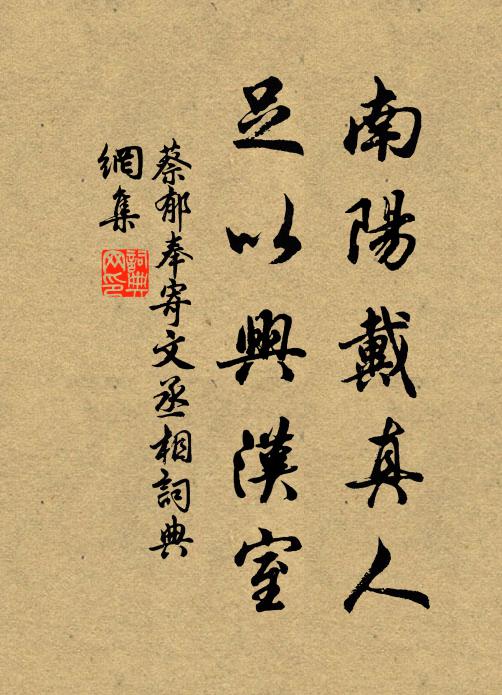 南陽戴真人
足以興漢室
蔡郁奉寄文丞相詞典
網集
詞典網印